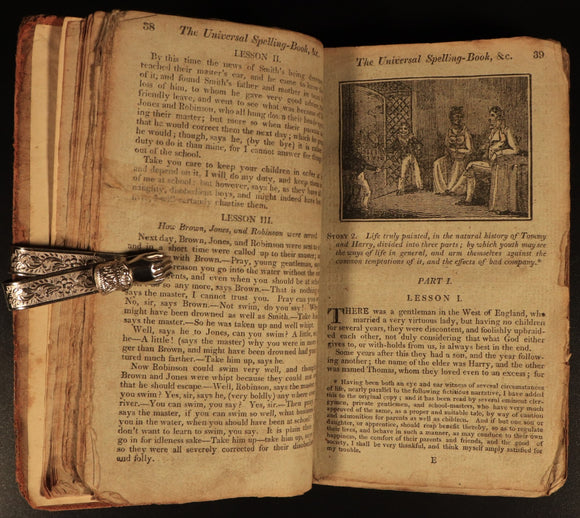 38 The Universal Spelling-Book, &c.
LESSON II.
By this time the news of Smith's being drowned
reached their master's ear, and he came to know
of it; and found Smith's father and mother in
loss of him, to whom he gave very good advice,
friendly leave, and went to see what was become of
Jones and Robinson, who all hung down their heads
ing their master; but more so when their parents
that he would correct them the next day; which he
he would; though, says he, (by the bye) it is rather
duty to do it than mine, for I cannot answer for things
out of the school.
Take you care to keep your children in order at
and depend on it, I will do my duty, and keep them
of me at school: but however, says he, as they have
naughty, disobedient boys, and might indeed have
certainly chastise them.
LESSON III.
How Brown, Jones, and Robinson were served.
Next day, Brown, Jones, and Robinson were sent to
and in a short time were called up to their master;
with Brown.—Pray, young gentleman,
reason you go into the water without the
ents, and even when you should be at
so any more, says Brown.—That is nothing
says the master, I cannot trust you. Pray can you
No, sir, says Brown.—Not swim, do you say? Why
might have been drowned as well as Smith.—Take him
says the master.—So he was taken up and well whipt.
Well, says he to Jones, can you swim? A little,
he—A little! (says the master) why you were in more
ger than Brown, and might have been drowned had you
tured much farther.—Take him up, says he.
Now Robinson could swim very well, and thought
Brown and Jones were whipt because they could not
that he should escape.—Well, Robinson, says the master,
you swim? Yes, sir, says he, (very boldly) any where
river.—You can swim, you say? Yes, Sir.—Then pray
says the master, if you can swim so well, what business
you in the water, when you should have been at school?
don't want to learn to swim, you say. It is plain then
go in for idleness sake.—Take him up—take him up,
so they were all severely corrected for their disobedience
and folly.
The Universal Spelling-Book, &c. 39
STORY 2. Life truly painted, in the natural history of Tommy
and Harry, divided into three parts; by which youth may see
the ways of life in general, and arm themselves against the
common temptations of it, and the effects of bad company.*
PART I.
LESSON I.
THERE was a gentleman in the West of England, who
married a very virtuous lady, but having no children
for several years, they were discontent, and foolishly upbraid-
ed each other, not duly considering that what God either
gives to, or with-holds from us, is always best in the end.
Some years after this they had a son, and the year follow-
ing another; the name of the elder was Harry, and the other
was named Thomas, whom they loved even to an excess; for
* Having been both an eye and ear witness of several circumstances
of life, nearly parallel to the following fictitious narrative, I have added
this to the original copy; and it has been read by several eminent cler-
gymen, private gentlemen, and school-masters, who have very much
approved of the same, as a proper and suitable tale, by way of caution
and admonition for parents as well as children. And if but one son or
daughter, or apprentice, should reap benefit thereby, so as to regulate
their lives, and behave in such a manner, as may conduce to their own
happiness, the comfort of their parents and friends, and the good of
society, I shall be very thankful, and think myself amply satisfied for
my trouble.
E